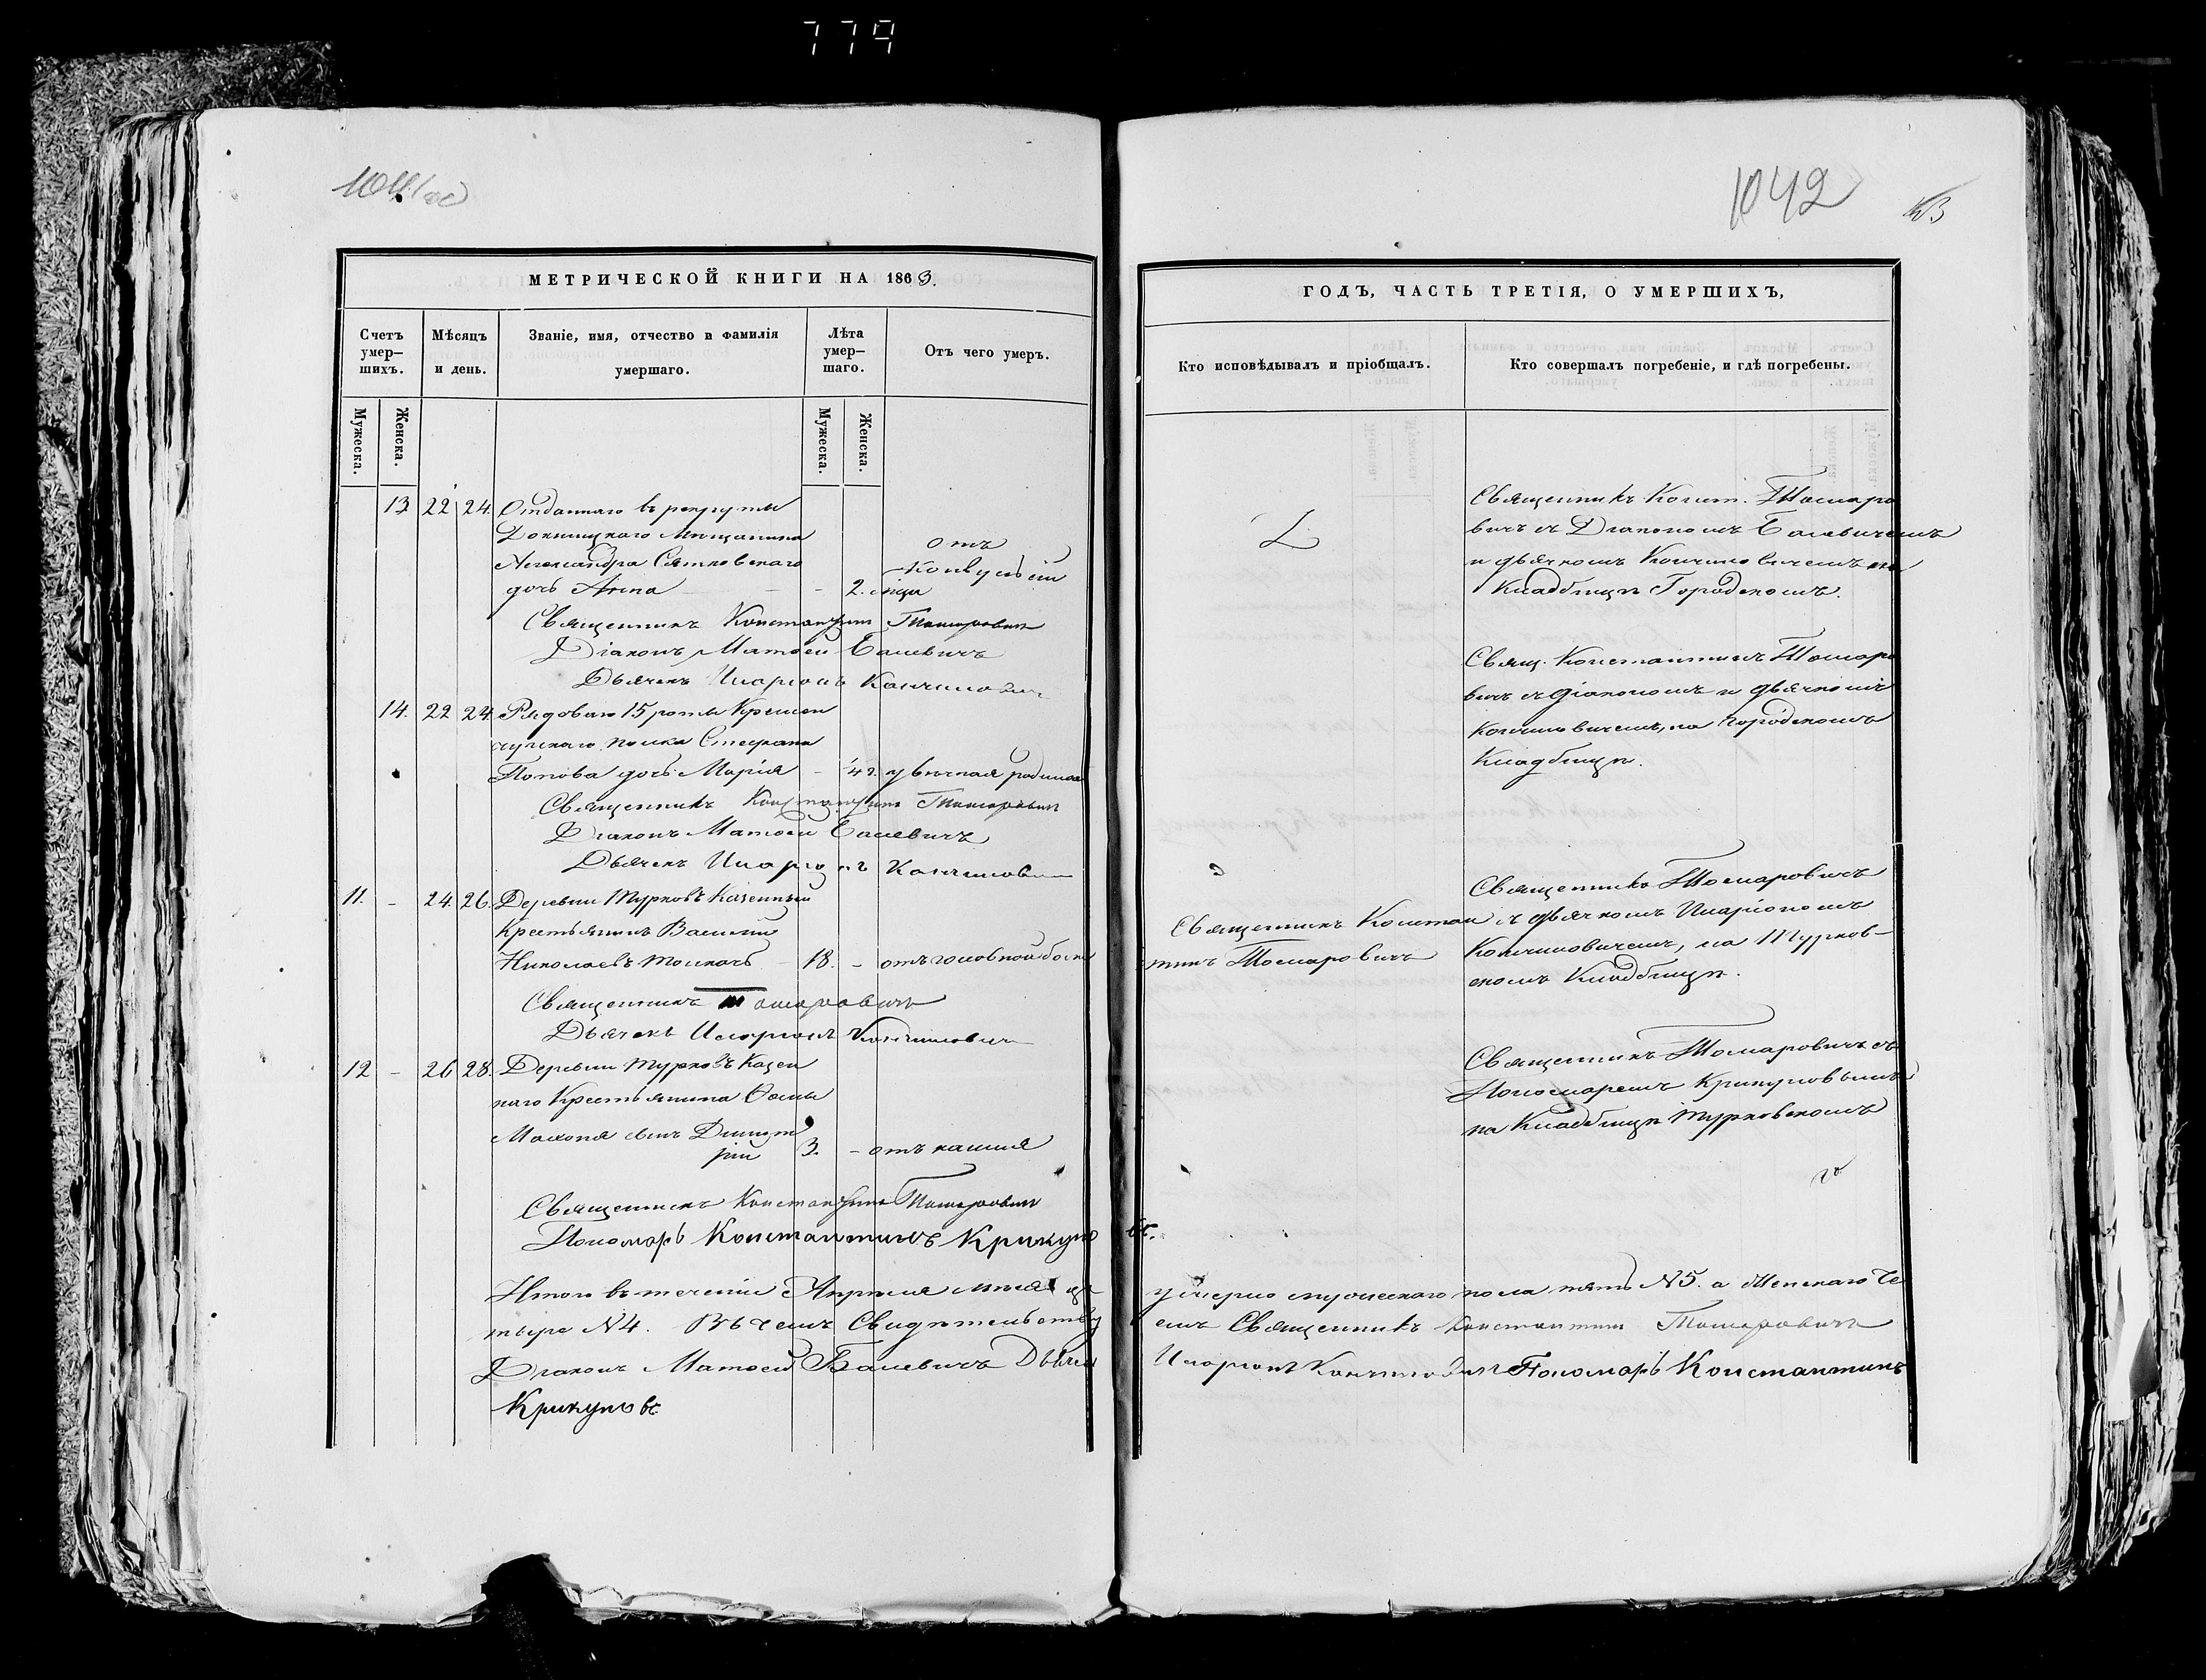 779
1042
МЕТРИЧЕСКОЙ КНИГИ НА 1863.
Счетъ умер—шихъ.
Мѣсяцъ и день.
Званіе, имя, отчество и фамилія умершаго.
Лѣта умер—шаго.
Отъ чего умеръ.
Мужеска.
Женска.
Мужеска.
Женска.
13 22 24. Отданнаго въ рекруты
Докшицкаго Мѣщанина
Александра
дочь Анна 2.
отъ
Конвульсіи
Священникъ Константинъ Томаровичъ
Діаконъ Матѳей Балевичъ
Дьячекъ Иларіонъ
14. 22 24. Рядоваго 15 роты Кремен
чугскаго полка Стефана
Попова дочь Марія
Священникъ Константинъ Томаровичъ
Діаконъ Матѳей Балевичъ
Дьячекъ Иларіонъ
11. – 24. 26. Деревни Турковъ Казенный
Крестьянинъ Василій
Николаевъ Толкачъ 18. – отъ головной боли
Священникъ Томаровичъ
Дьячекъ Иларіонъ
12 – 26 28. Деревни Турковъ Казен
наго Крестьянина Ѳомы
сынъ Димит
рій 3. – отъ кашля
Священникъ Константинъ Томаровичъ
Пономарь Константинъ Крикуно
Итого въ теченіи Апрѣля мѣсяца че
тыре №4. Въ чемъ Свидѣтельству
Діаконъ Матѳей Балевичъ Дьячек
Крикуновъ
ГОДЪ, ЧАСТЬ ТРЕТІЯ, О УМЕРШИХЪ,
Кто исповѣдывалъ и пріобщалъ.
Кто совершалъ погребеніе, и гдѣ погребены.
Священникъ Конст. Томаро
вичъ съ Діакономъ Балевичемъ
и дьячкомъ на
Кладбищѣ Городскомъ.
Свящ. Константинъ Томаро
вичъ съ діакономъ и дьячкомъ
на городскомъ
Кладбищѣ.
Священникъ Констан
тинъ Томаровичъ
Священникъ Томаровичъ
съ дьячкомъ Иларіономъ
на Турков–
скомъ Кладбищѣ.
Священникъ Томаровичъ съ
Пономаремъ Крикуновымъ
на Кладбищѣ Турковскомъ
въ.
умерло мужескаго пола пять №5. а Женскаго Че
емъ Священникъ Константинъ Томаровичъ
Иларіонъ Пономарь Константинъ